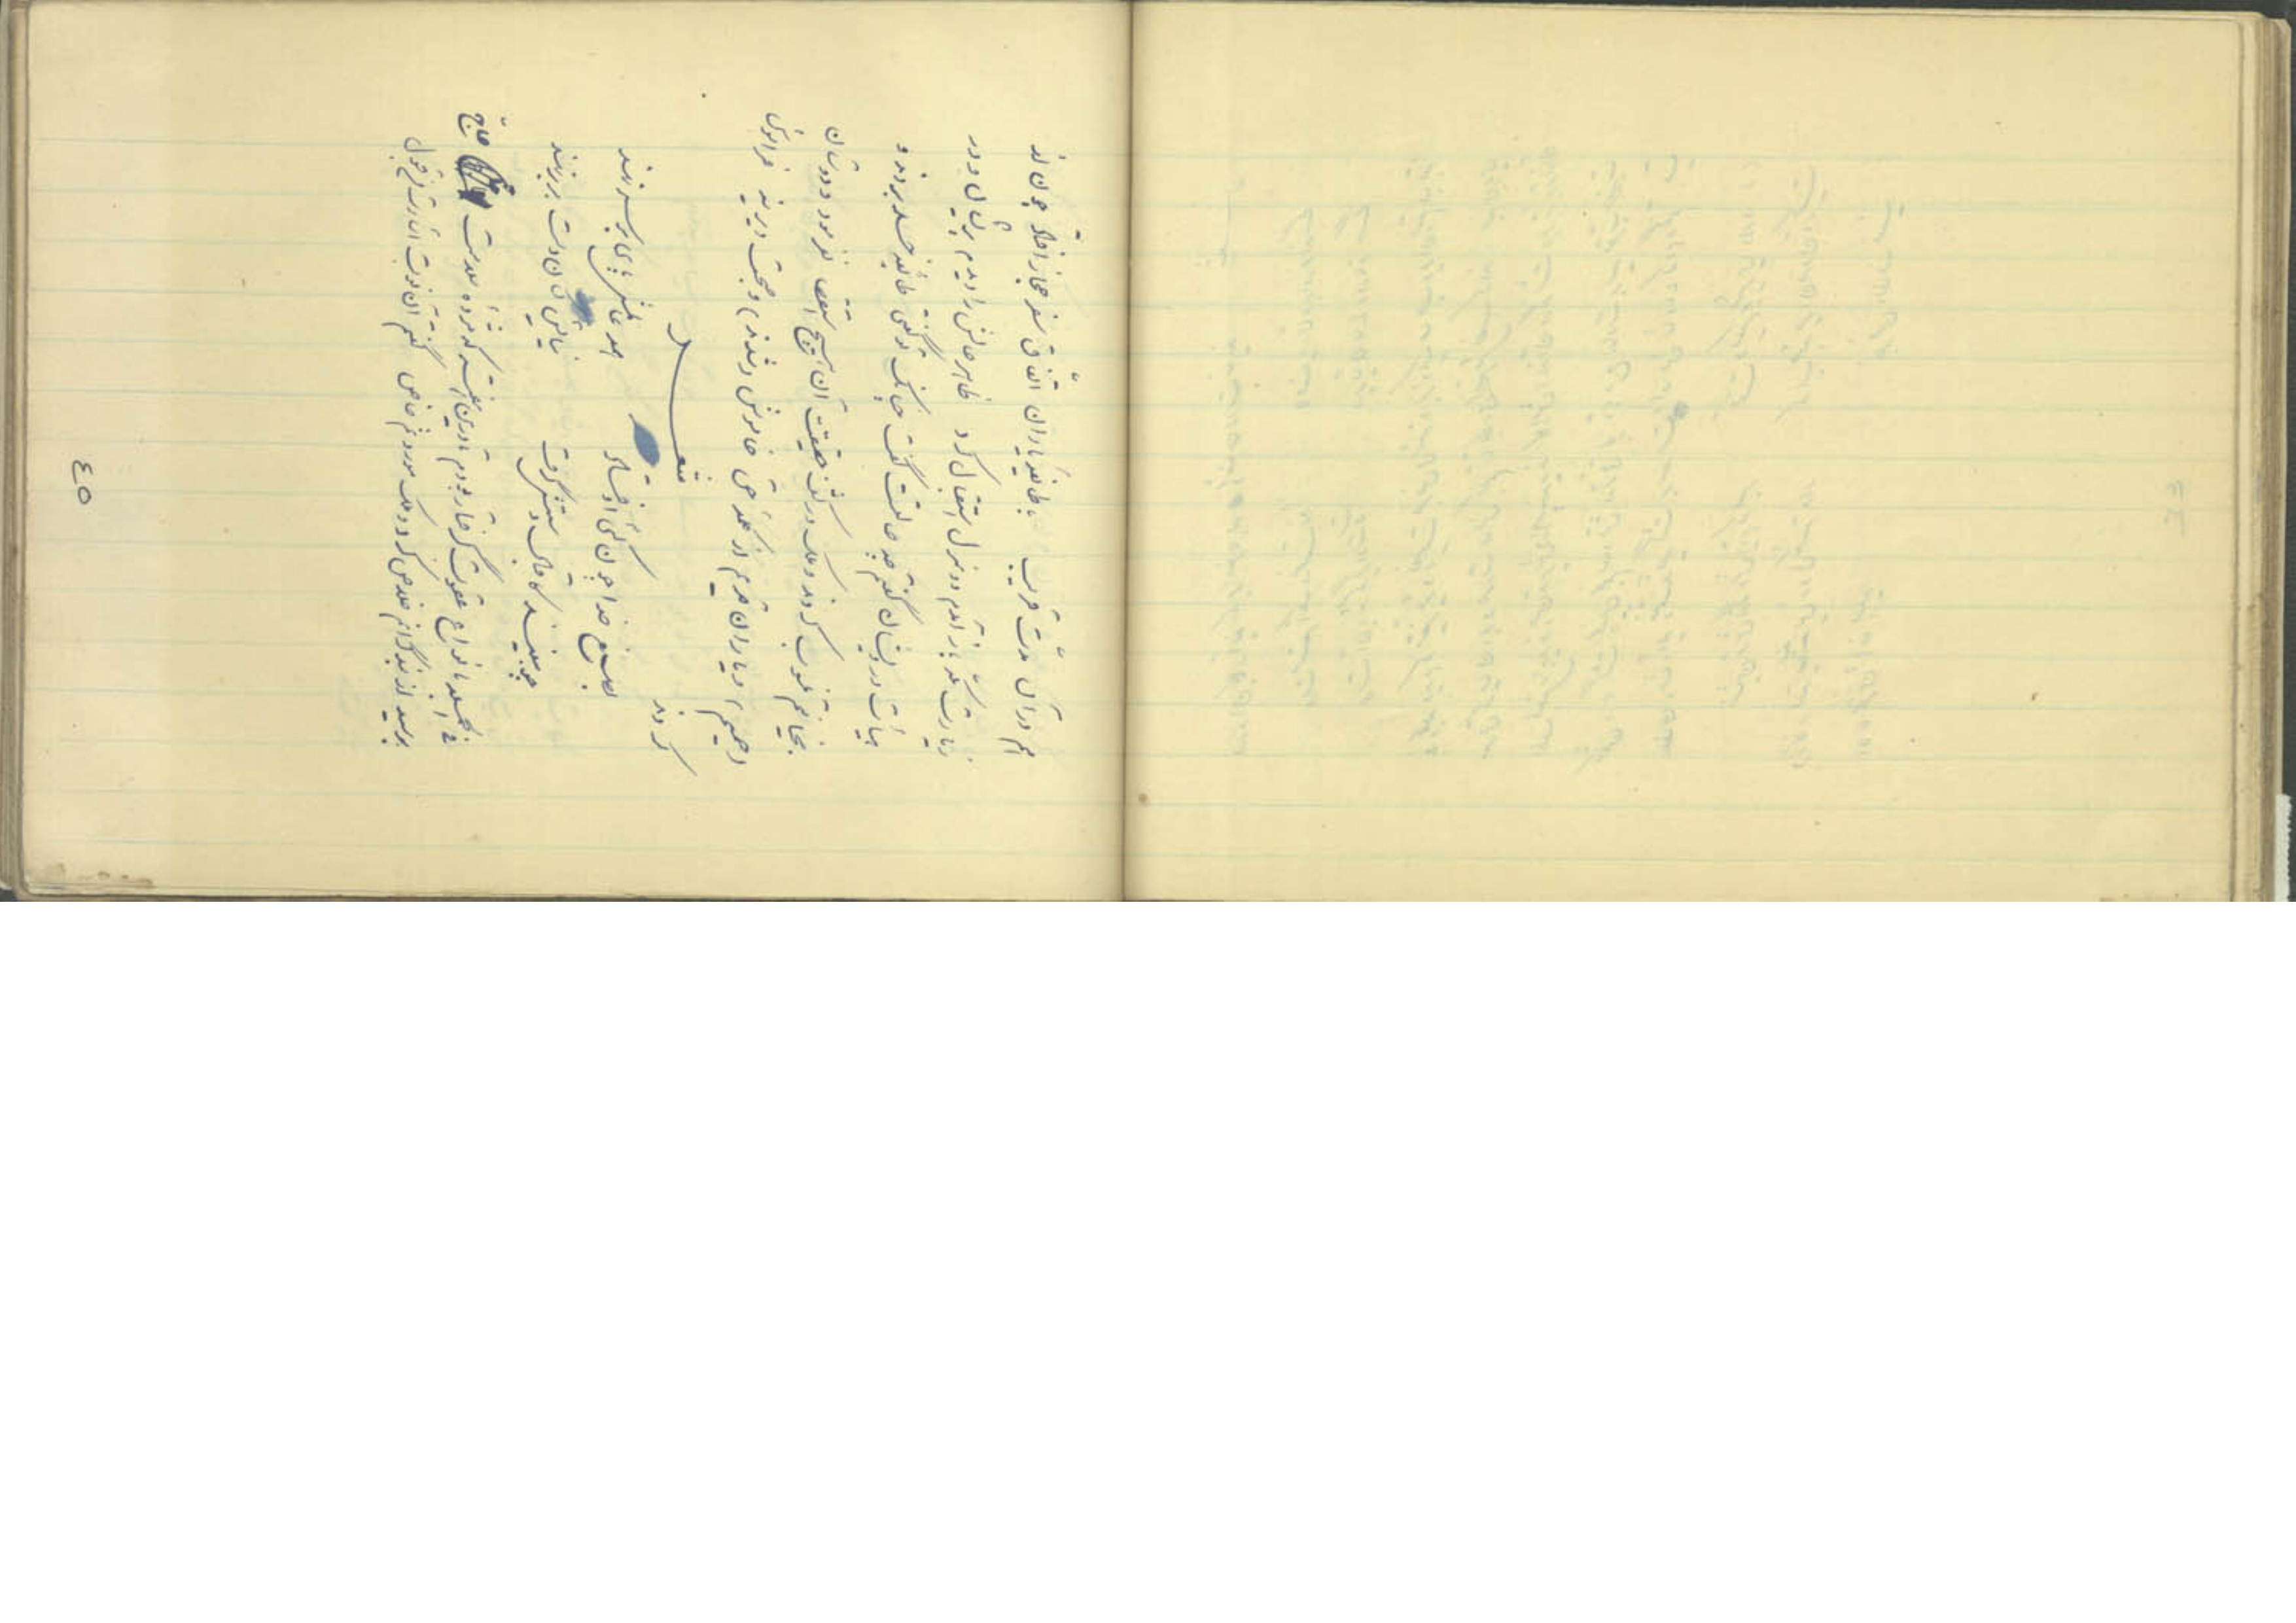 هم درآن مدّت قریب با طایفهٔ یاران اتّفاق سفر حجاز افتاد چون از
زیارت مکّه باز آمدم دو منزل استقبال کرد ظاهر حالش را دیدم پریشان و در
هیأت درویشان گفتم چه حالتست گفت چنانکه تو گفتی طائفهٔ حسد بردند و
بخیانتم منسوب کردند و ملک در کشف حقیقت آن استقصا نفرمود و دوستان
و حمیم و یاران قدیم از کلمهٔ حق خاموش شدند و صحبت دیرینه فراموش
کردند
شعر
بصنع خدا چون کسی اوفتاد همه عالمش پای بر سر نهند
چو بینند کاقبال دستش گرفت نیایش کنان دست بر بر نهند
فی الجمله بانواع عقوبت گرفتار بودم تا درین هفته که مژده سلامت حاجّ
برسید از بند گرانم خلاص کرد و ملک موروثم خاص گفتم آن نوبت اشارت من قبول
٤٥